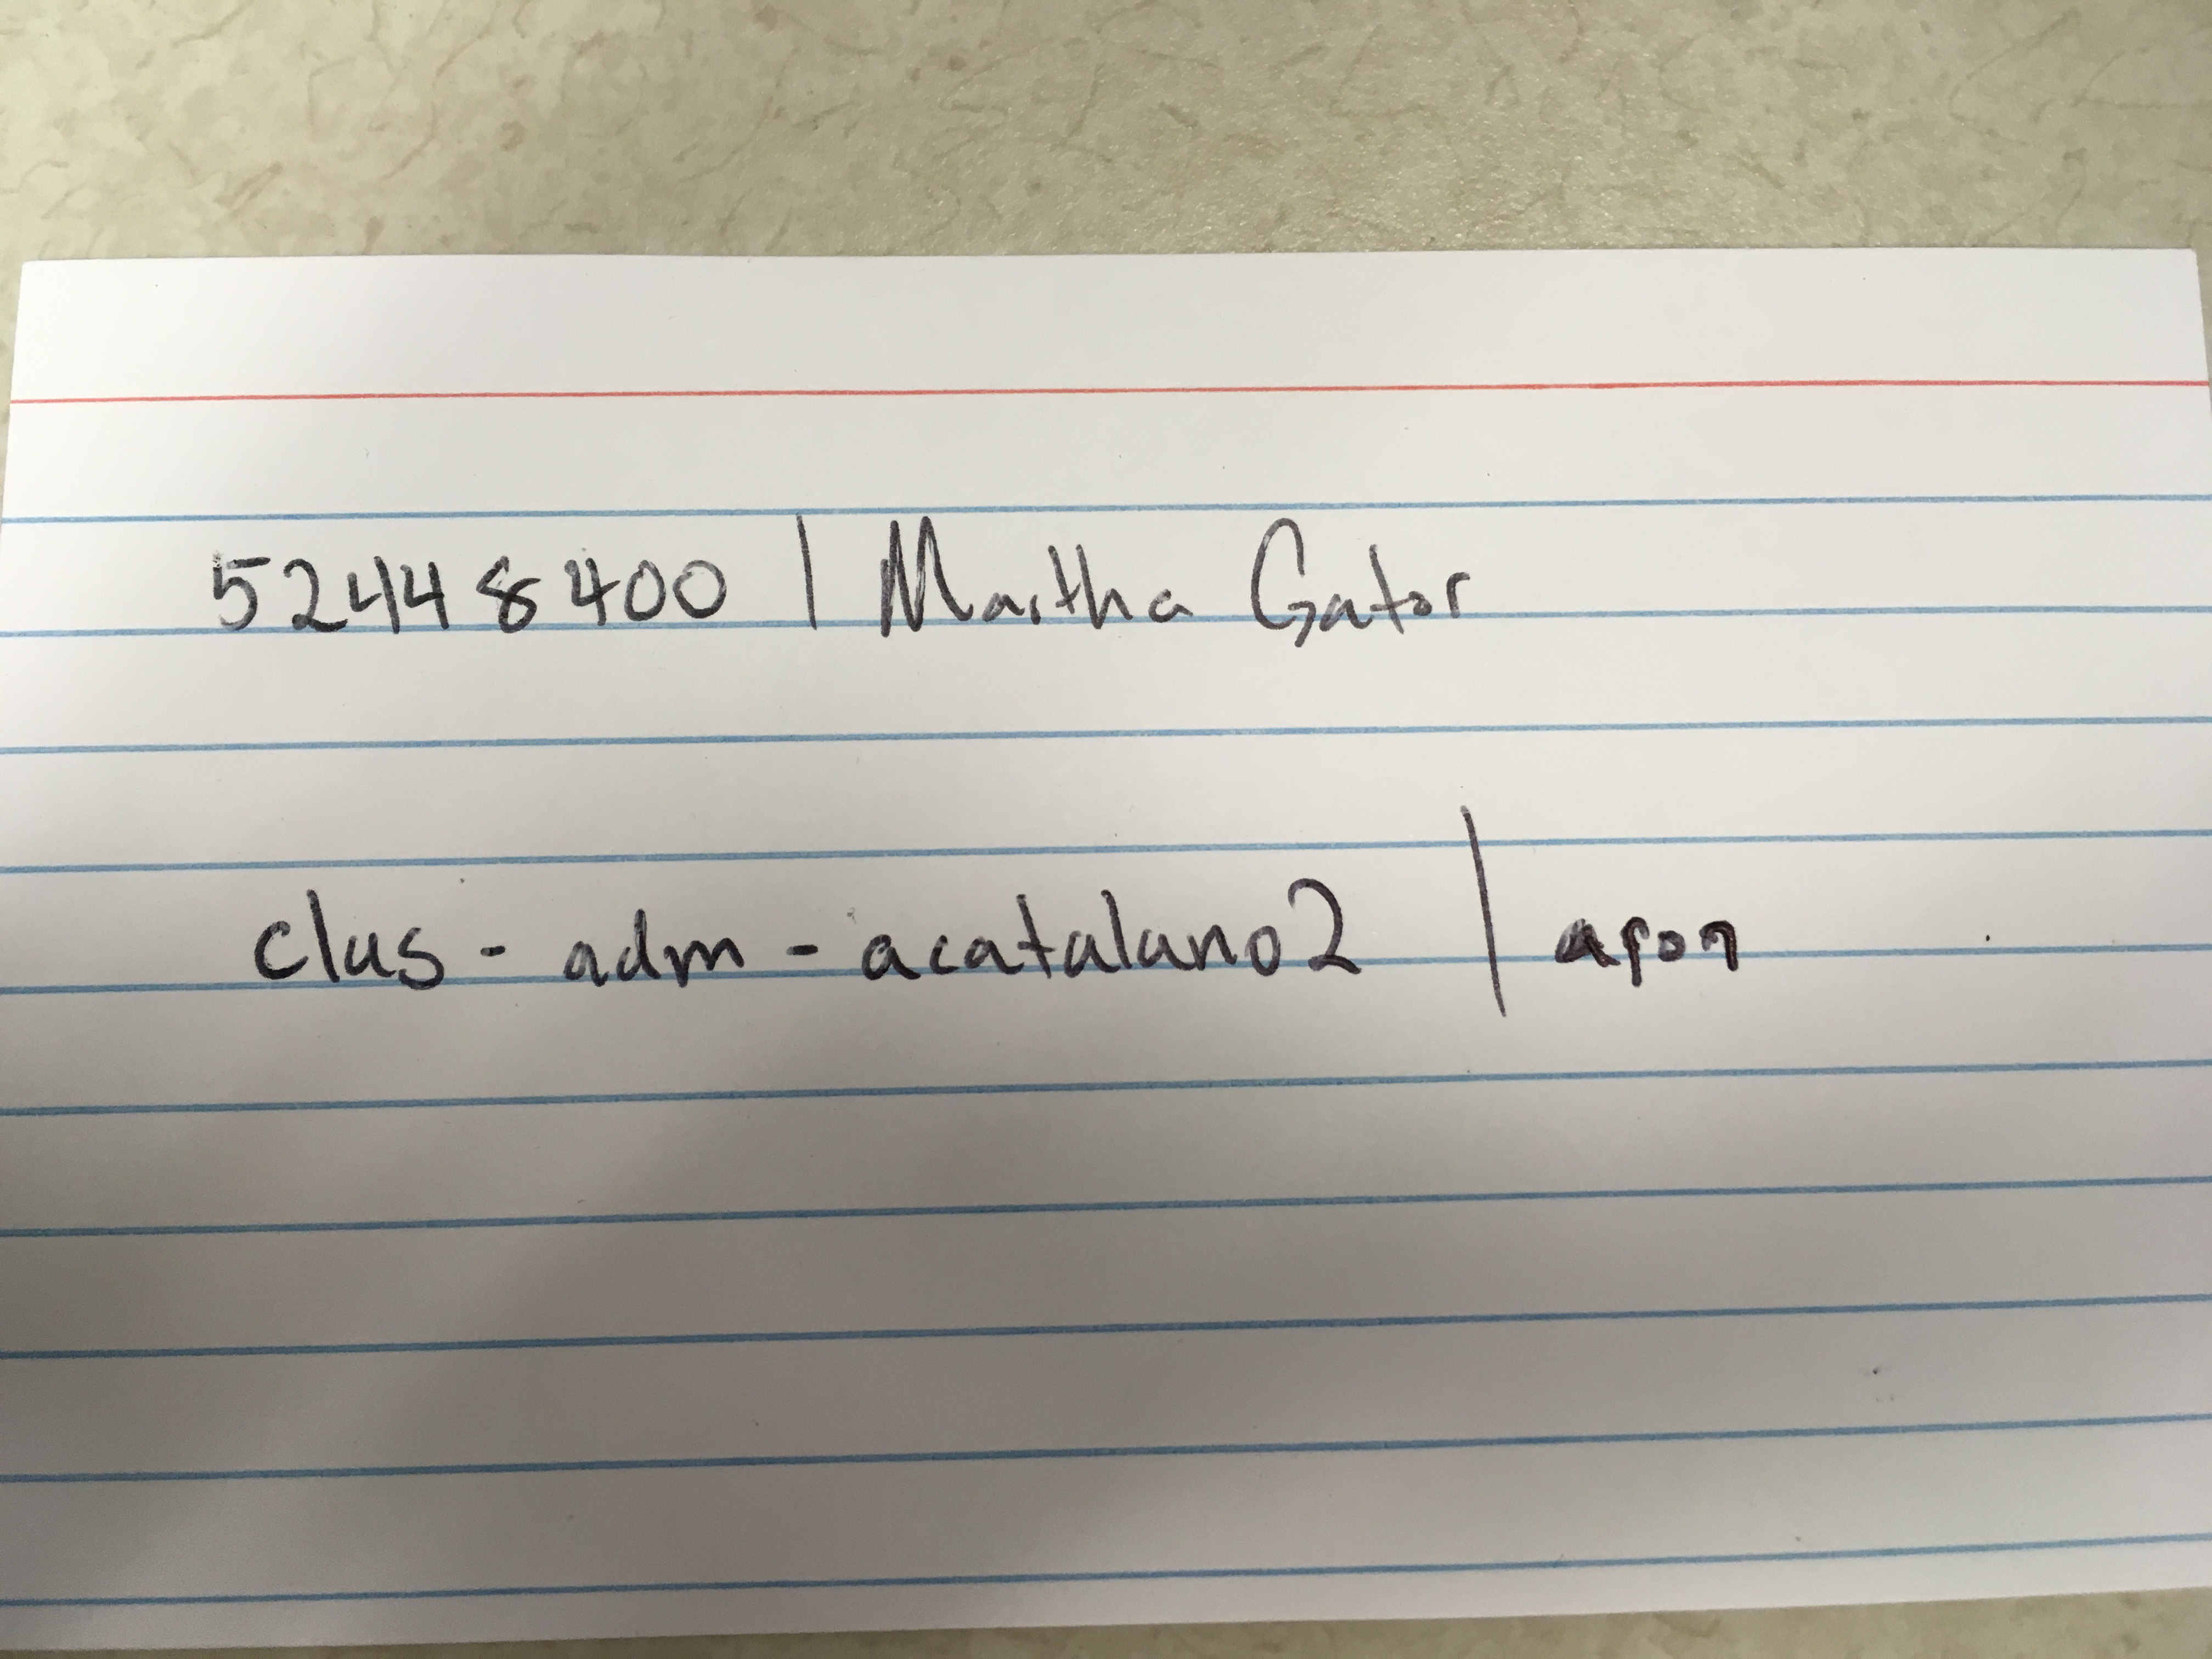 52448400 | Martha Gator
clus-adm-acatalano2 |